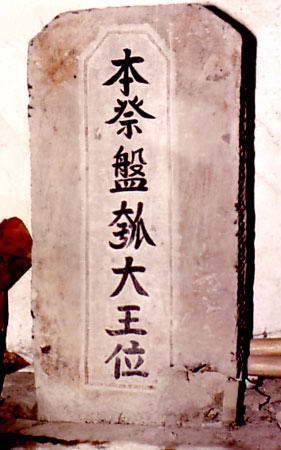 本祭盤瓠大王位